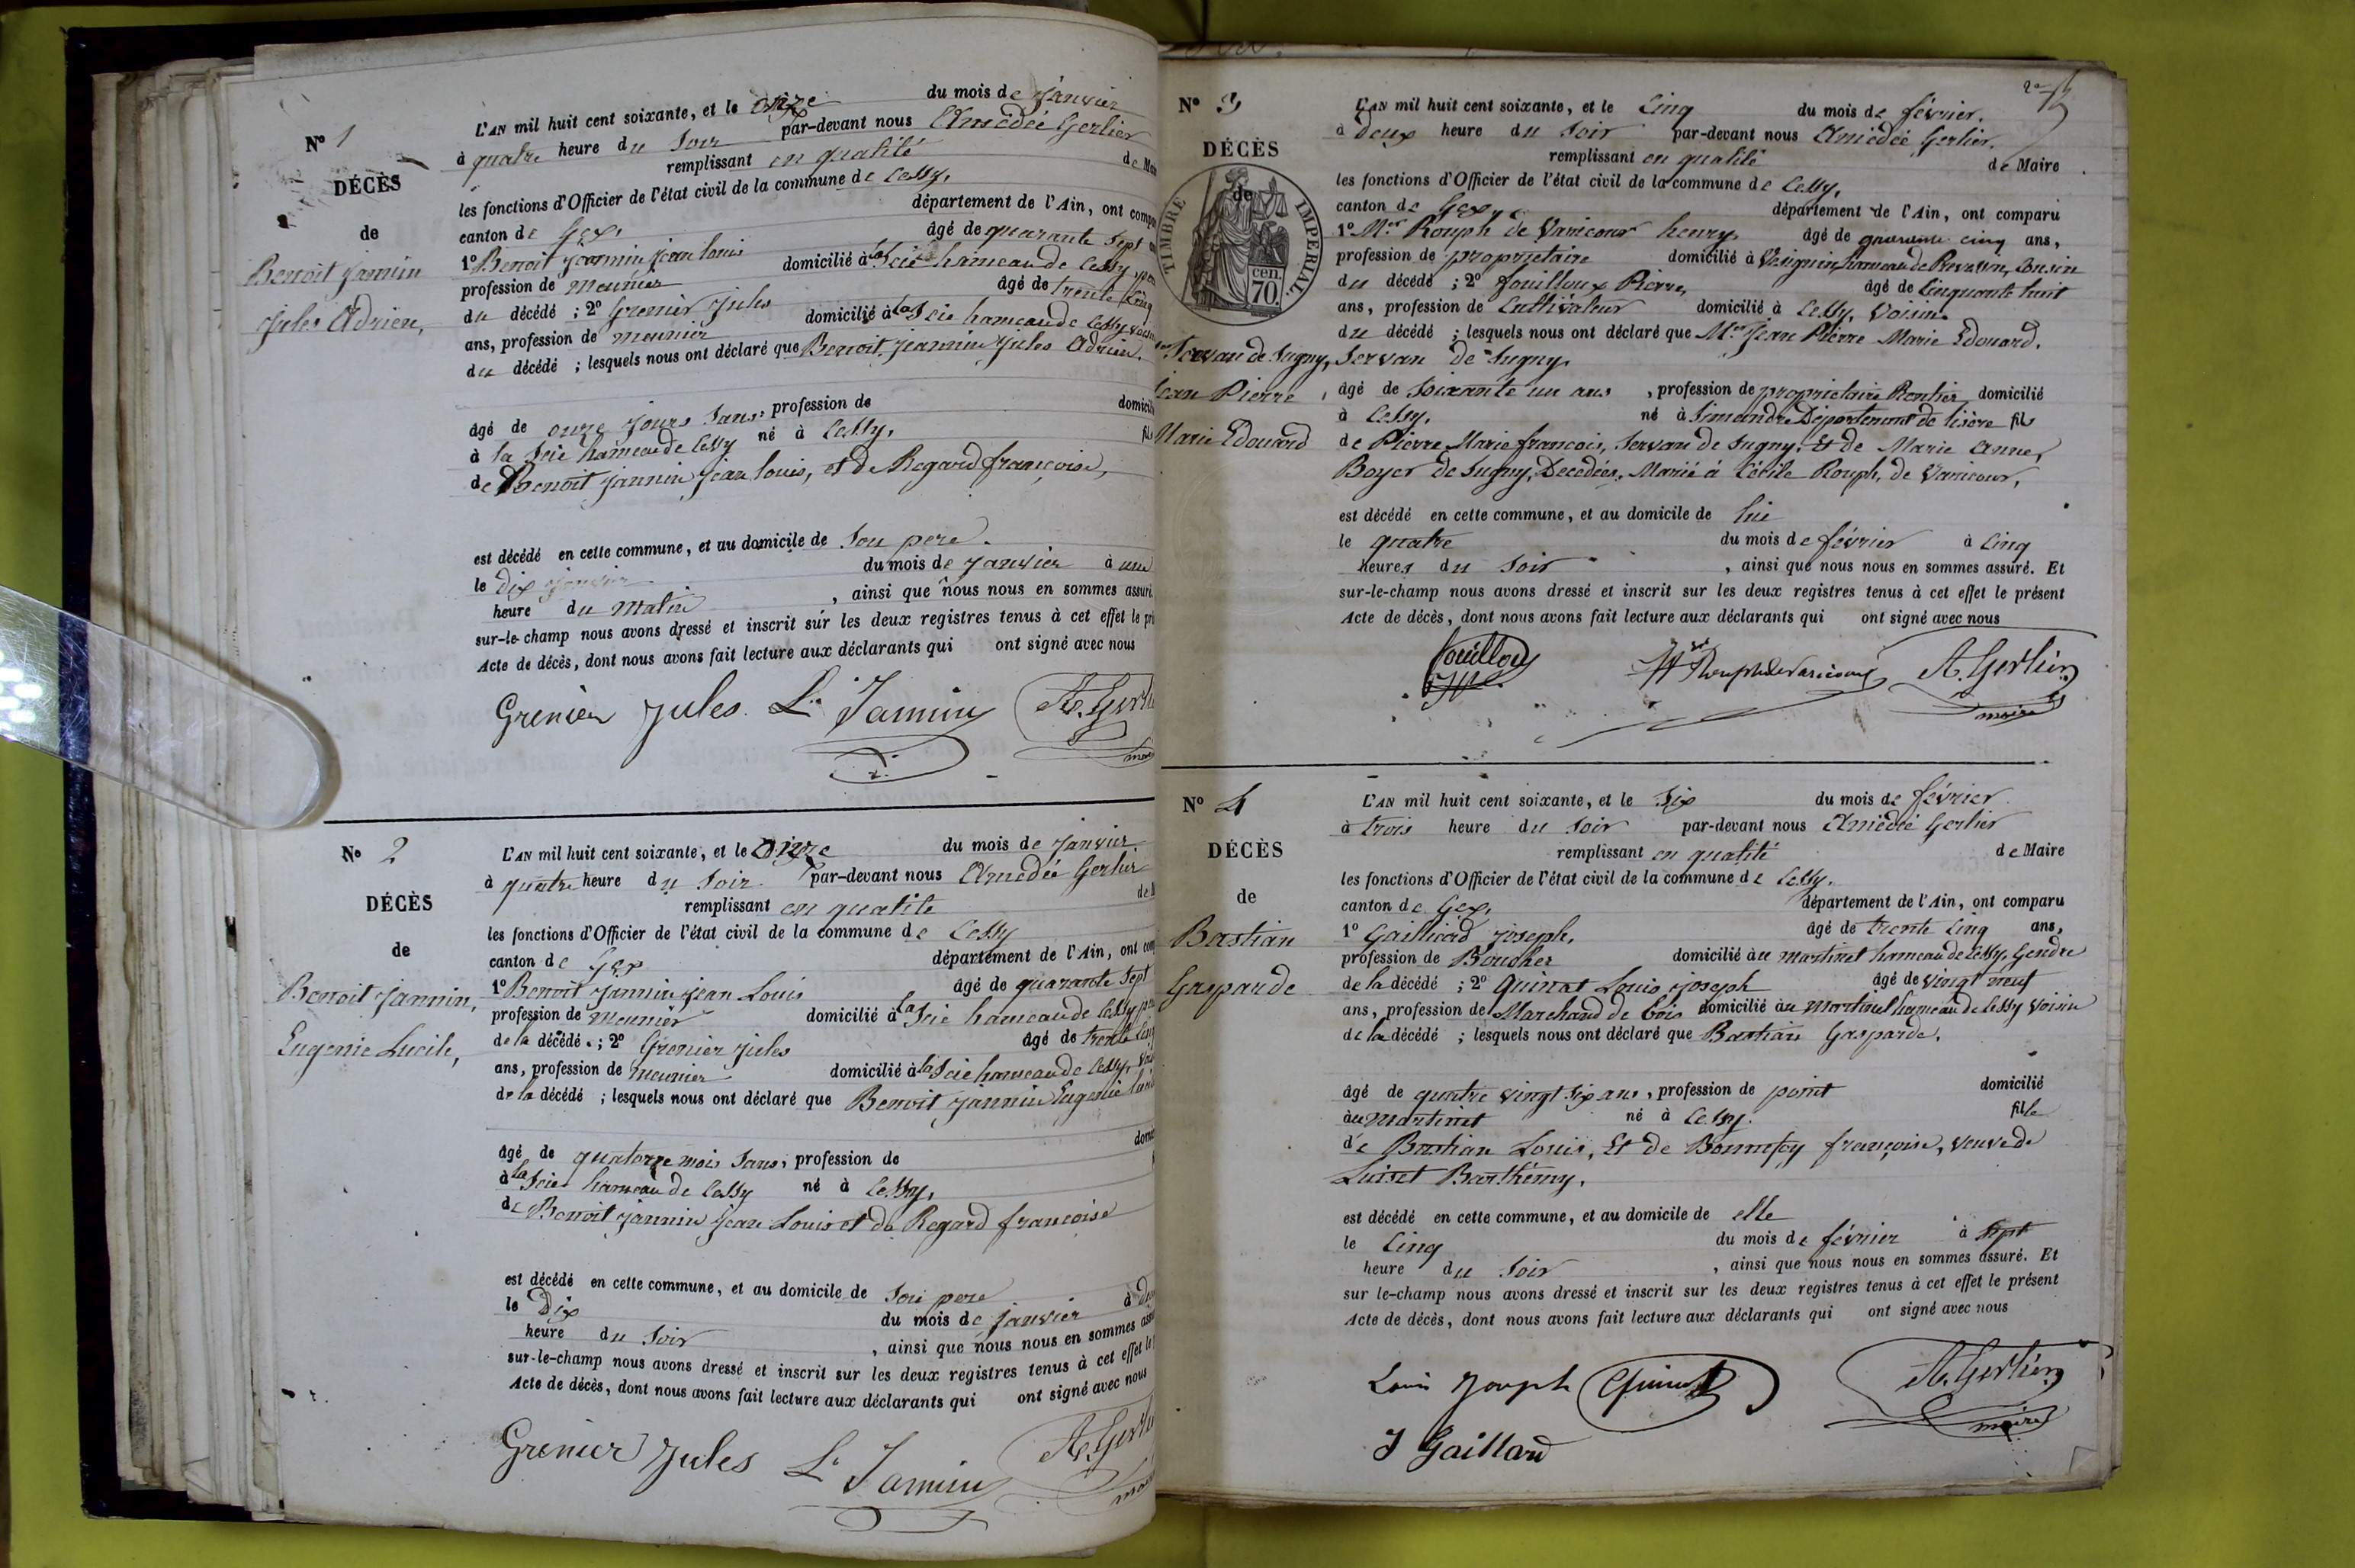 N° 1
DÉCÈS
de
Benoit Jannin
Jules Adrien,
L'AN mil huit cent soixante, et le onze du mois de Janvier
à quatre heure du Soir par-devant nous Amédée Gerlier
remplissant en qualité de Mai
les fonctions d'Officier de l'état civil de la commune de Cessy,
canton de Gex, département de l'Ain, ont compa
1° Benoit Jannin Jean Louis âgé de quarante Sept
profession de Meunier domicilié à la Scie hameau de Cessy, père
du décédé ; 2° Grenier Jules âgé de trente Cinq
ans, profession de meunier domicilié à la Scie hameau de Cessy voisin
du décédé ; lesquels nous ont déclaré que Benoit Jannin Jules Adrien.
âgé de onze jours Sans, profession de domicili
à la Scie hameau de Cessy né à Cessy, fils
de Benoit Jannin Jean Louis, et de Regard françoise,
est décédé en cette commune, et au domicile de Son pere.
le Dix du mois de Janvier à une
heure du Matin , ainsi que nous nous en sommes assuré.
sur-le-champ nous avons dressé et inscrit sur les deux registres tenus à cet effet le pré
Acte de décès, dont nous avons fait lecture aux déclarants qui ont signé avec nous
Grenier Jules L. Jannin A. Gerli
N° 2
DÉCÈS
de
Benoit Jannin,
Eugenie Lucile,
L'AN mil huit cent soixante, et le onze du mois de Janvier
à quatre heure du Soir par-devant nous Amédée Gerlier
remplissant en qualité de M
les fonctions d'Officier de l'état civil de la commune de Cessy
canton de Gex département de l'Ain, ont com
1° Benoit Jannin Jean Louis âgé de quarante Sept
profession de meunier domicilié à la Scie hameau de Cessy père
de la décédé ; 2° Grenier Jules âgé de trente Cinq
ans, profession de meunier domicilié à la Scie hameau de Cessy, Vois
de la décédé ; lesquels nous ont déclaré que Benoit Jannin Eugenie Lucile
âgé de quatorze mois Sans, profession de domi
à la Scie hameau de Cessy né à Cessy,
de Benoit Jannin Jean Louis et de Regard françoise
est décédé en cette commune, et au domicile de Son pere
le Dix du mois de Janvier à
heure du Soir , ainsi que nous nous en sommes ass
sur-le-champ nous avons dressé et inscrit sur les deux registres tenus à cet effet le
Acte de décès, dont nous avons fait lecture aux déclarants qui ont signé avec nous
Grenier Jules L. Jannin A. Gerli
N° 3
DÉCÈS
de
TIMBRE IMPERIAL
70 cen.
Servan de Sugny,
Jean Pierre
Marie Edouard
L'AN mil huit cent soixante, et le Cinq du mois de février.
à deux heure du Soir par-devant nous Amédée Gerlier.
remplissant en qualité de Maire
les fonctions d'Officier de l'état civil de la commune de Cessy,
canton de Gex, département de l'Ain, ont comparu
1° Mr Rouph de Varicour henry, âgé de quarante cinq ans,
profession de proprietaire domicilié à Vesignin, hameau de Prevessin, Cousin
du décédé ; 2° fouilloux Pierre, âgé de Cinquante huit
ans, profession de Cultivateur domicilié à Cessy, Voisin
du décédé ; lesquels nous ont déclaré que Mr Jean Pierre Marie Edouard,
Servan de Sugny,
âgé de Soixante un ans , profession de proprietaire Rentier domicilié
à Cessy, né à Simandre Département de lisère fils
de Pierre Marie francois, Servan de Sugny, Et de Marie Anne,
Boyer de Sugny, Decedées, Marié à Cécile Rouph, de Varicour,
est décédé en cette commune, et au domicile de lui
le quatre du mois de février à Cinq
heures du Soir , ainsi que nous nous en sommes assuré. Et
sur-le-champ nous avons dressé et inscrit sur les deux registres tenus à cet effet le présent
Acte de décès, dont nous avons fait lecture aux déclarants qui ont signé avec nous
fouilloux Rouph de Varicour A. Gerlier
maire
N° 4
DÉCÈS
de
Bastian
Gasparde
L'AN mil huit cent soixante, et le Six du mois de février
à trois heure du Soir par-devant nous Amédée Gerlier
remplissant en qualité de Maire
les fonctions d'Officier de l'état civil de la commune de Cessy.
canton de Gex, département de l'Ain, ont comparu
1° Gailliard Joseph, âgé de trente Cinq ans,
profession de Boucher domicilié au martinet hameau de Cessy, Gendre
de la décédé ; 2° Quinat Louis Joseph âgé de vingt neuf
ans, profession de Marchand de bois domicilié au Martinet hameau de Cessy Voisin
de la décédé ; lesquels nous ont déclaré que Bastian Gasparde.
âgé de quatre vingt Six ans, profession de point domicilié
au martinet né à Cessy. fille
de Bastian Louis, Et de Bonnefoy françoise, veuve de
Luiset Barthémy,
est décédé en cette commune, et au domicile de elle
le Cinq du mois de février à Sept
heure du Soir , ainsi que nous nous en sommes assuré. Et
sur le-champ nous avons dressé et inscrit sur les deux registres tenus à cet effet le présent
Acte de décès, dont nous avons fait lecture aux déclarants qui ont signé avec nous
Louis Joseph Quinat A. Gerlier
maire
J Gaillard